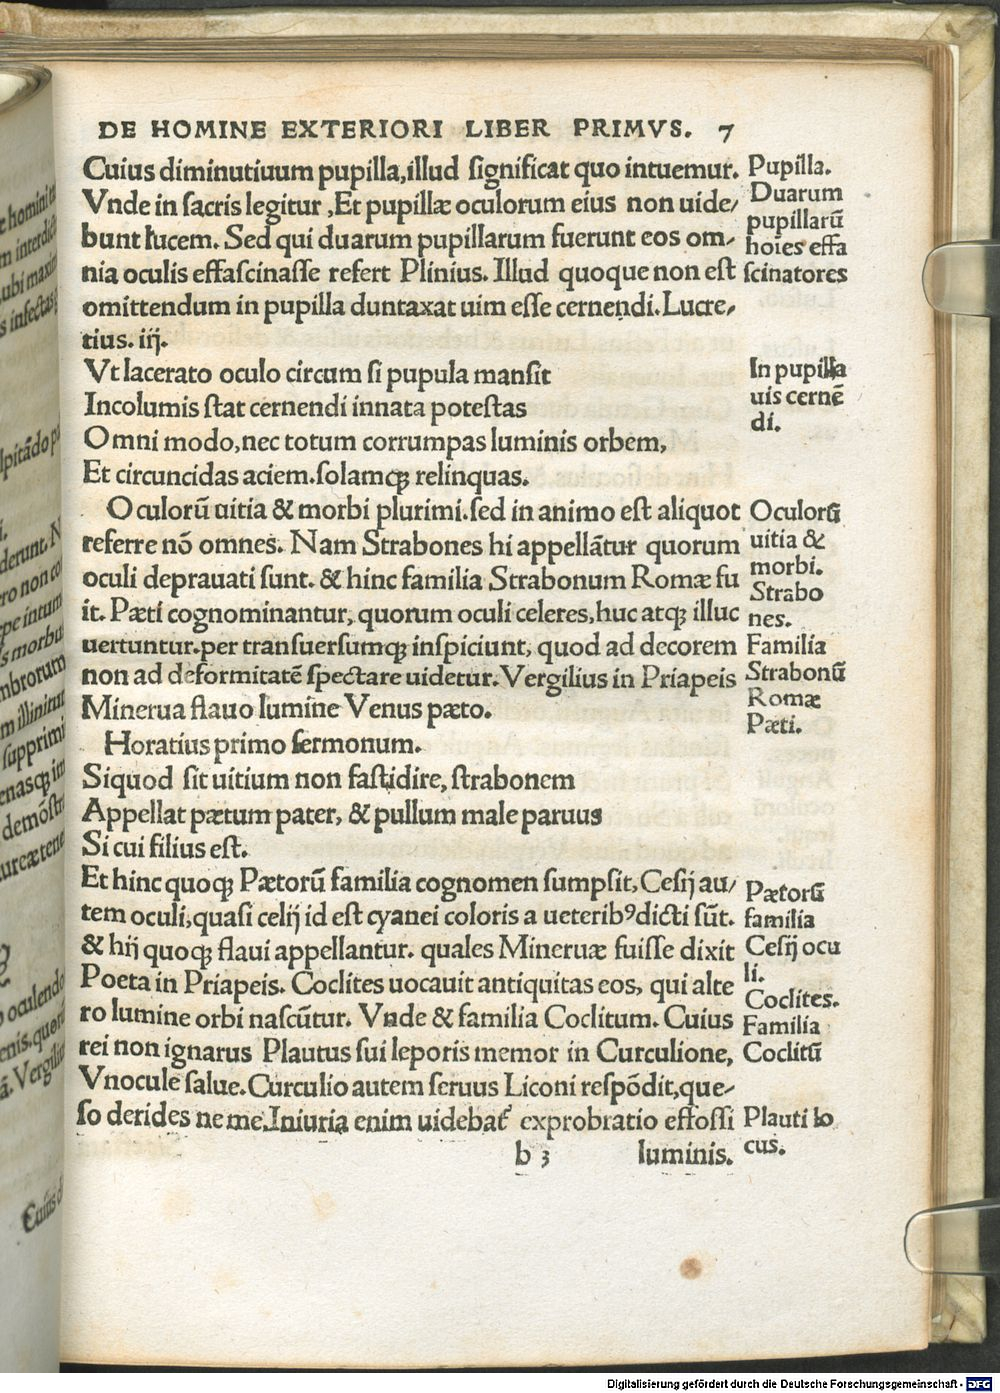 DE HOMINE EXTERIORI LIBER PRIMVS. 7
Cuius diminutiuum pupilla,illud significat quo intuemur.
Vnde in sacris legitur ,Et pupillæ oculorum eius non uide/
bunt lucem. Sed qui duarum pupillarum fuerunt eos om/
nia oculis effascinasse refert Plinius. Illud quoque non est
omittendum in pupilla duntaxat uim esse cernendi. Lucre/
tius. iij.
Vt lacerato oculo circum si pupula mansit
Incolumis stat cernendi innata potestas
Omni modo,nec totum corrumpas luminis orbem,
Et circuncidas aciem.solamqꝫ relinquas.
Oculorū uitia & morbi plurimi.sed in animo est aliquot
referre nō omnes. Nam Strabones hi appellātur quorum
oculi deprauati sunt. & hinc familia Strabonum Romæ fu
it. Pæti cognominantur, quorum oculi celeres,huc atqꝫ illuc
uertuntur.per transuersumqꝫ inspiciunt, quod ad decorem
non ad deformitatē spectare uidetur. Vergilius in Priapeis
Minerua flauo lumine Venus pæto.
Horatius primo sermonum.
Siquod sit uitium non fastidire, strabonem
Appellat pætum pater, & pullum male paruus
Si cui filius est.
Et hinc quoqꝫ Pætorū familia cognomen sumpsit, Cesij au/
tem oculi,quasi celij id est cyanei coloris a ueteribꝰ dicti sūt.
& hij quoqꝫ flaui appellantur. quales Mineruæ fuisse dixit
Poeta in Priapeis. Coclites uocauit antiquitas eos, qui alte
ro lumine orbi nascūtur. Vnde & familia Coclitum. Cuius
rei non ignarus Plautus sui leporis memor in Curculione,
Vnocule salue. Curculio autem seruus Liconi respōdit,que/
so derides ne me.Iniuria enim uidebat᷑ exprobratio effossi
b 3 luminis.
Pupilla.
Duarum
pupillarū
hoīes effa
scinatores
In pupilla
uis cernē
di.
Oculorū
uitia &
morbi.
Strabo
nes.
Familia
Strabonū
Romæ
Pæti.
Pætorū
familia
Cesij ocu
li.
Coclites.
Familia
Coclitū
Plauti lo
cus.
Digitalisierung gefördert durch die Deutsche Forschungsgemeinschaft - DFG